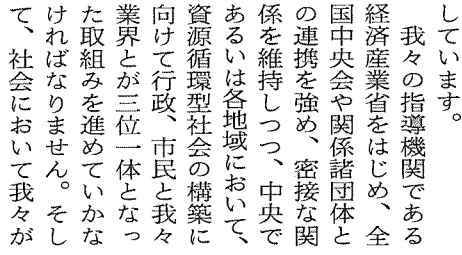 しています。
　我々の指導機関である
経済産業省をはじめ、全
国中央会や関係諸団体と
の連携を強め、密接な関
係を維持しつつ、中央で
あるいは各地域において、
資源循環型社会の構築に
向けて行政、市民と我々
業界とが三位一体となっ
た取組みを進めていかな
ければなりません。そし
て、社会において我々が